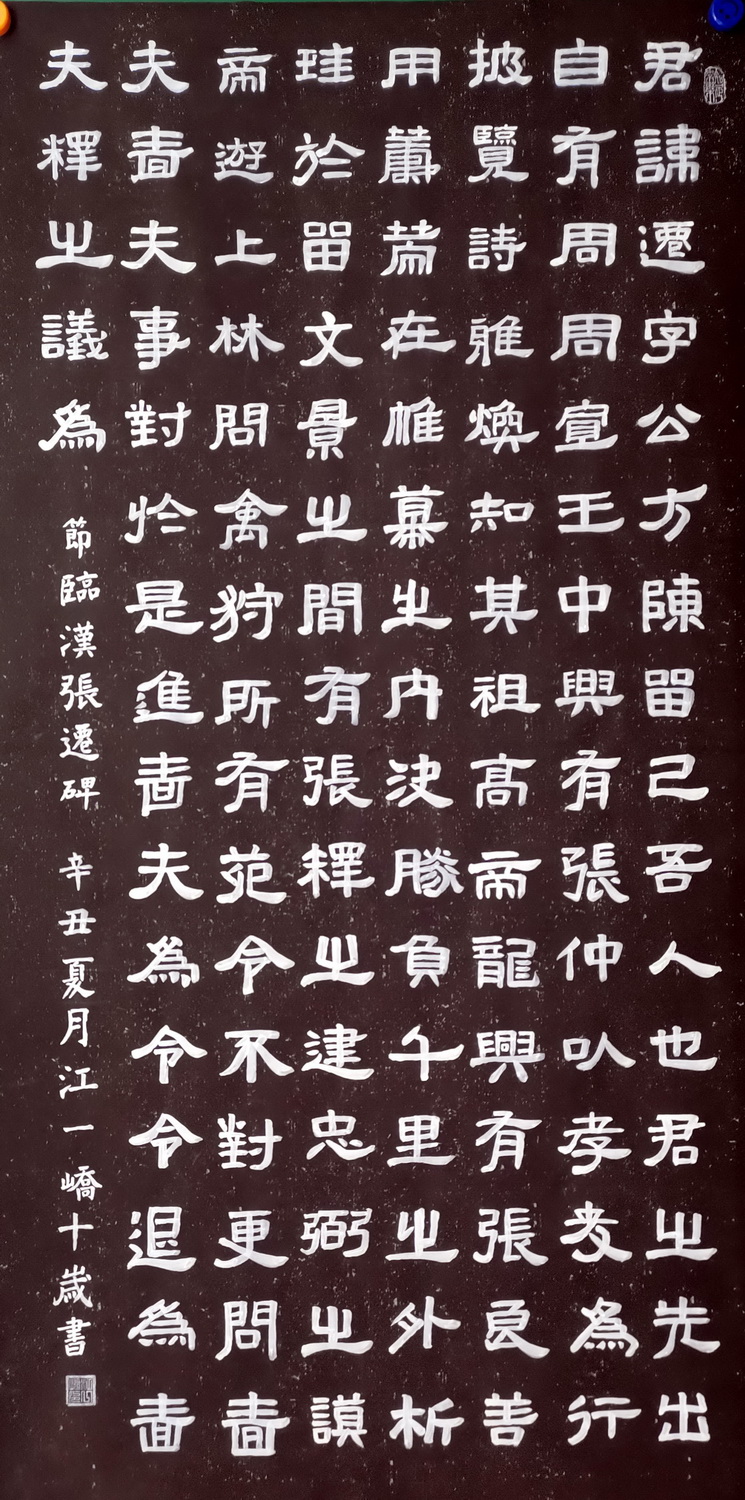 君諱遷字公方陳留己吾人也君之先出
自有周周宣王中興有張仲以孝友為行
披覽詩雅煥知其祖高帝龍興有張良善
用籌策在帷幕之内決勝負千里之外析
珪於留文景之間有張釋之建忠弼之謨
帝遊上林問禽狩所有苑令不對更問嗇
夫嗇夫事對於是進嗇夫為令令退為嗇
夫釋之議為
節臨漢張遷碑 辛丑夏月江一嶠十歲書